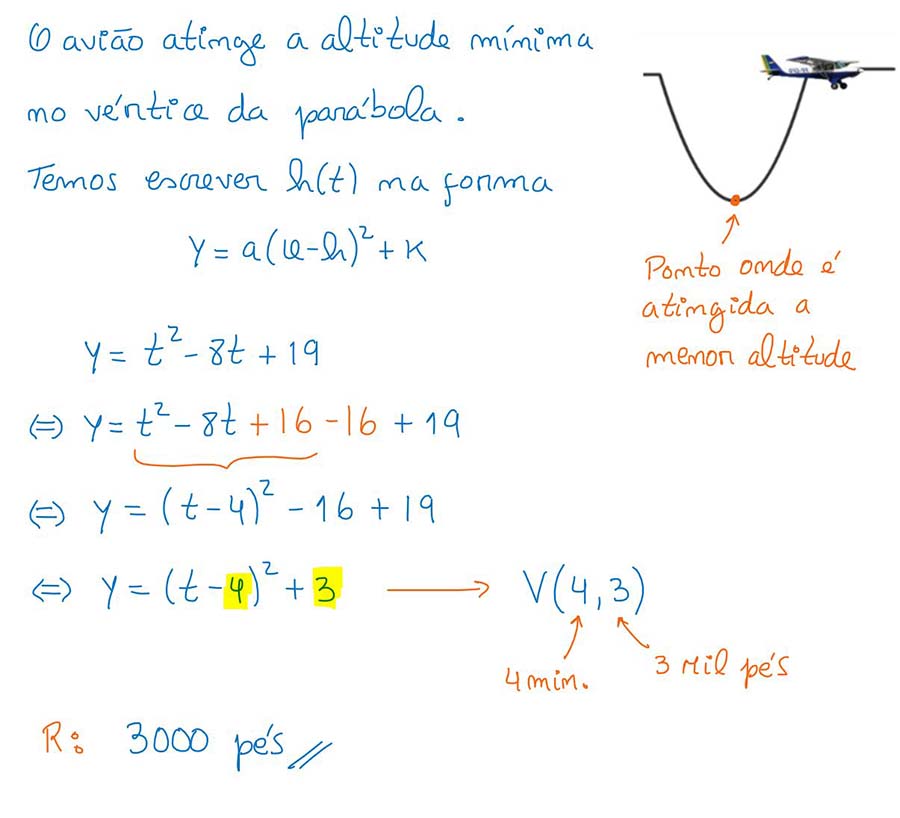 O avião atinge a altitude mínima
no vértice da parábola.
Temos escrever h(t) na forma
y = a(x-h)² + k
Ponto onde é
atingida a
menor altitude
y = t² - 8t + 19
⇔ y = t² - 8t + 16 - 16 + 19
⇔ y = (t-4)² - 16 + 19
⇔ y = (t-4)² + 3 → V(4,3)
4 min. 3 mil pés
R: 3000 pés //